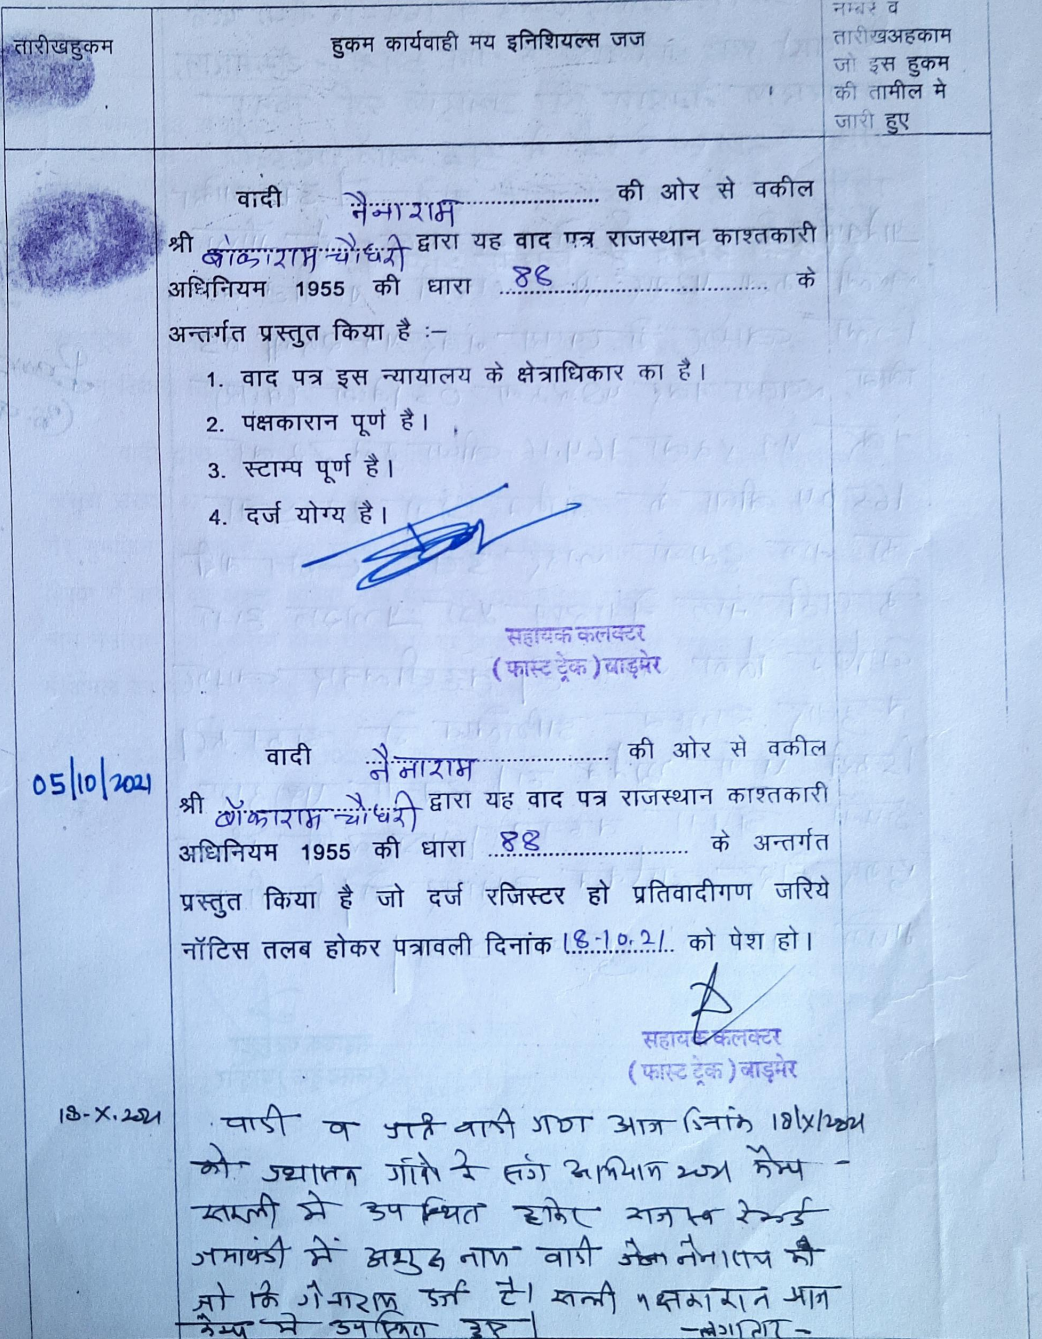 तारीखहुकम
हुकम कार्यवाही मय इनिशियल्स जज
नम्बर व
तारीखअहकाम
जो इस हुकम
की तामील मे
जारी हुए
वादी नैनाराम की ओर से वकील
श्री बांकाराम चौधरी द्वारा यह वाद पत्र राजस्थान काश्तकारी
अधिनियम 1955 की धारा 88 के
अन्तर्गत प्रस्तुत किया है :–
1. वाद पत्र इस न्यायालय के क्षेत्राधिकार का है।
2. पक्षकारान पूर्ण है।
3. स्टाम्प पूर्ण है।
4. दर्ज योग्य है।
सहायक कलक्टर
(फास्ट ट्रेक) बाड़मेर
05/10/2021
वादी नैनाराम की ओर से वकील
श्री बॉकाराम चौधरी द्वारा यह वाद पत्र राजस्थान काश्तकारी
अधिनियम 1955 की धारा 88 के अन्तर्गत
प्रस्तुत किया है जो दर्ज रजिस्टर हो प्रतिवादीगण जरिये
नॉटिस तलब होकर पत्रावली दिनांक 18-10.21 को पेश हो।
सहायक कलक्टर
(फास्ट ट्रेक) बाड़मेर
18-X.2021
वादी व प्रतिवादी गण आज दिनांक 18/X/2021
को प्रशासन गांवो रे संग अभियान 2021 कैम्प -
में उपस्थित होकर राजस्व रेकर्ड
जमाबंदी में अशुद्ध नाम वादी नैनाराम
जो कि गेनाराम दर्ज है। पक्षकारान आज
कैम्प में उपस्थित हुए।
-लगातार-